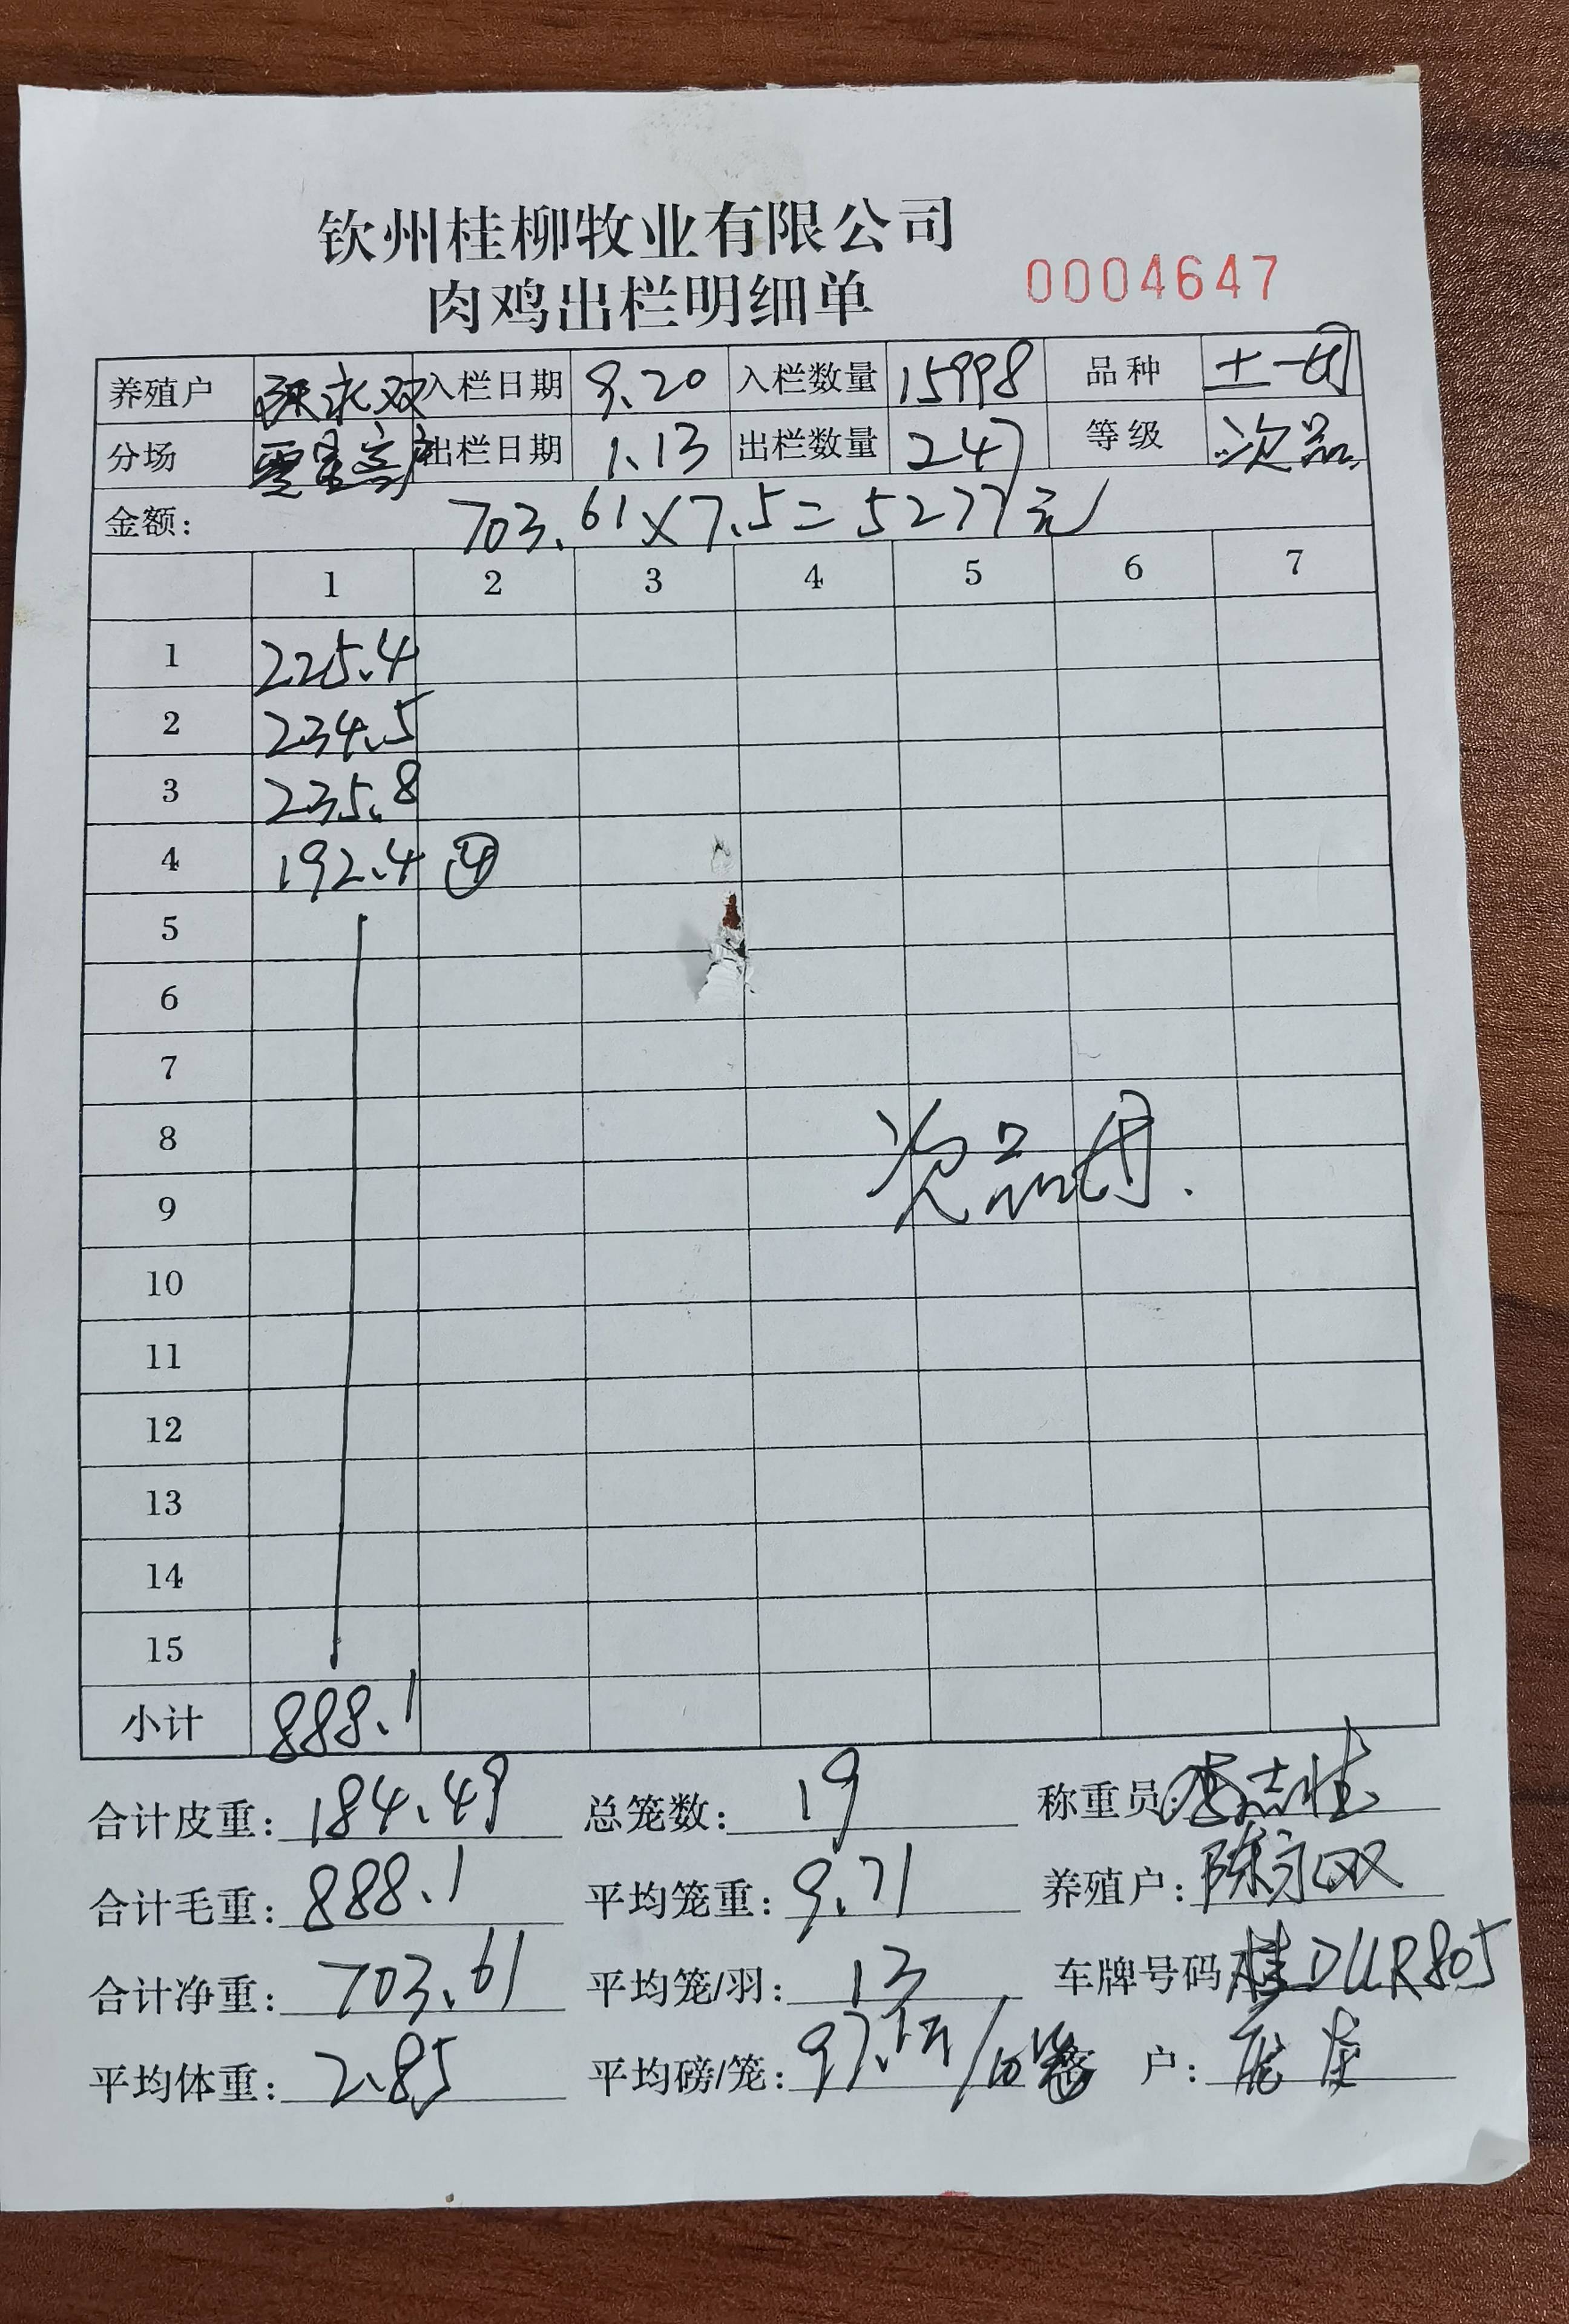 钦州桂柳牧业有限公司
肉鸡出栏明细单
0004647
养殖户 陈永双 入栏日期 9.20 入栏数量 15998 品种 土一
分场 出栏日期 1.13 出栏数量 247 等级 次品
金额: 703.61×7.5=5277元
1 2 3 4 5 6 7
1 225.4
2 234.5
3 235.8
4 192.4 ④
5
6
7
8
次品
9
10
11
12
13
14
15
小计 888.1
合计皮重: 184.49 总笼数: 19 称重员: 志
合计毛重: 888.1 平均笼重: 9.71 养殖户: 陈永双
合计净重: 703.61 平均笼/羽: 13 车牌号码 桂DUR805
平均体重: 2.85 平均磅/笼: 97.1斤/10笼 户: